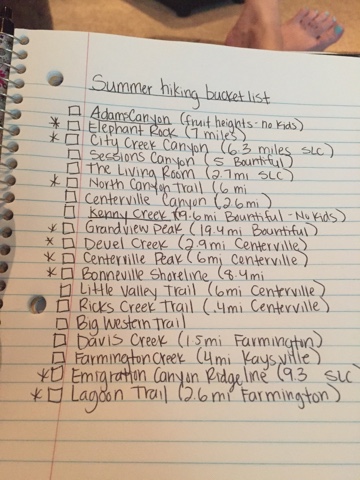 Summer hiking bucket list
Adams Canyon (fruit heights - no kids)
* Elephant Rock (7 miles)
* City Creek Canyon (6.3 miles SLC)
Sessions Canyon (5 Bountiful)
The Living Room (2.7mi SLC)
* North Canyon Trail (6 mi
Centerville Canyon (2.6mi)
Kenny Creek (9.6mi Bountiful - No kids)
* Grandview Peak (19.4mi Bountiful)
* Deuel Creek (2.9mi Centerville)
* Centerville Peak (6mi Centerville)
* Bonneville Shoreline (8.4mi
Little Valley Trail (6mi Centerville)
Ricks Creek Trail (.4mi Centerville)
Big Western Trail
Davis Creek (1.5mi Farmington)
Farmington Creek (4mi Kaysville)
* Emigration Canyon Ridgeline (9.3 SLC
* Lagoon Trail (2.6mi Farmington)